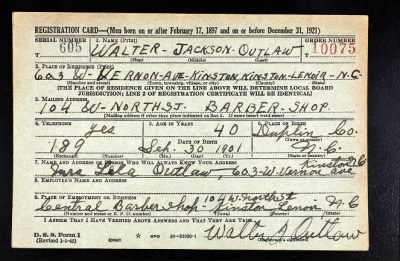 REGISTRATION CARD—(Men born on or after February 17, 1897 and on or before December 31, 1921)
SERIAL NUMBER 1. NAME (Print) ORDER NUMBER
605 WALTER - JACKSON - OUTLAW 10075
(First) (Middle) (Last)
2. PLACE OF RESIDENCE (Print)
603 W- VERNON-AVE-KINSTON, KINSTON-LENOIR-N.C
(Number and street) (Town, township, village, or city) (County) (State)
[THE PLACE OF RESIDENCE GIVEN ON THE LINE ABOVE WILL DETERMINE LOCAL BOARD
JURISDICTION; LINE 2 OF REGISTRATION CERTIFICATE WILL BE IDENTICAL]
3. MAILING ADDRESS
104 W-NORTH ST. BARBER-SHOP.
[Mailing address if other than place indicated on line 2. If same insert word same]
4. TELEPHONE 5. AGE IN YEARS 6. PLACE OF BIRTH
yes 40 Duplin Co.
DATE OF BIRTH (Town or county)
189 Sep. 30 1901 N.C.
(Exchange) (Number) (Mo.) (Day) (Yr.) (State or country)
7. NAME AND ADDRESS OF PERSON WHO WILL ALWAYS KNOW YOUR ADDRESS Kinston N.C
Lela Outlaw, 603-W-Vernon ave
8. EMPLOYER'S NAME AND ADDRESS
9. PLACE OF EMPLOYMENT OR BUSINESS 104 W. North St
Central Barber Shop Kinston Lenoir N.C
(Number and street or R. F. D. number) (Town) (County) (State)
I AFFIRM THAT I HAVE VERIFIED ABOVE ANSWERS AND THAT THEY ARE TRUE.
D. S. S. Form 1
(Revised 1-1-42) (over) GPO 16—21630-1 Walter J. Outlaw